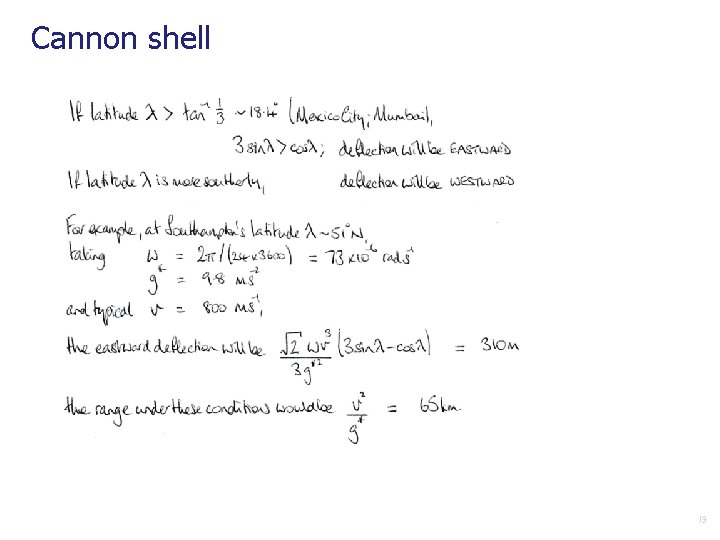 Cannon shell
If latitude λ > tan⁻¹ 1/3 ~ 18.4° (Mexico City; Mumbai),
3 sinλ > cosλ; deflection will be EASTWARD
If latitude λ is more southerly, deflection will be WESTWARD
For example, at Southampton's latitude λ ~ 51°N,
taking ω = 2π/(24×3600) = 73×10⁻⁶ rad s⁻¹
g* = 9.8 ms⁻²
and typical v = 800 ms⁻¹,
the eastward deflection will be √2 ωv³/3g*² (3 sinλ - cosλ) = 310m
the range under these conditions would be v²/g* = 65km.
13